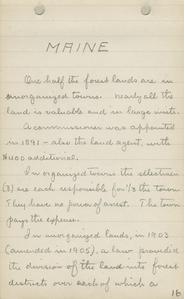 MAINE
One half the forest lands are in
unorganized towns. Nearly all the
land is valuable and in large units.
A commissioner was appointed
in 1891 - also the land agent, with
$400 additional.
In organized towns the selectmen
(3) are each responsible for 1/3 the town.
They have no power of arrest. The town
pays the expense.
In unorganized lands, in 1903
(amended in 1905), a law provided
the division of the land into forest
districts over each of which a
16